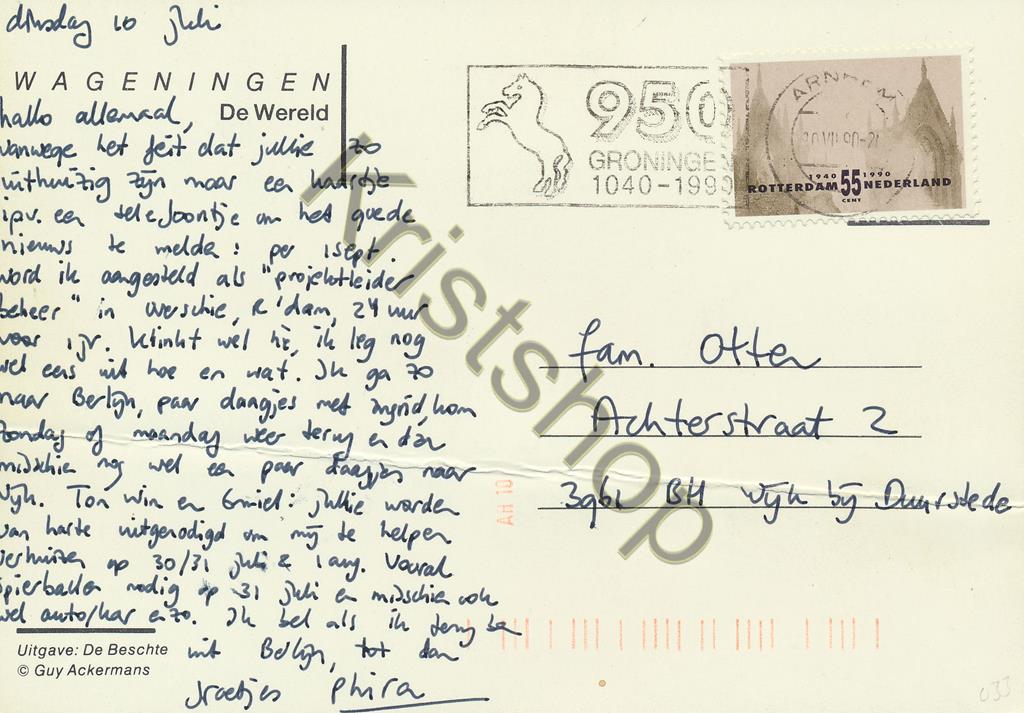 dinsdag 10 juli
WAGENINGEN
De Wereld
hallo allemaal,
vanwege het feit dat jullie zo
uithuizig zijn maar een kaartje
ipv. een telefoontje om het goede
nieuws te melden: per 1 sept.
word ik aangesteld als "projektleider
beheer" in Overschie, R'dam, 24 uur
voor 1 jr. Klinkt wel hè, ik leg nog
wel eens uit hoe en wat. Ik ga zo
naar Berlijn, paar daagjes met Ingrid, kom
zondag of maandag weer terug en dan
midschien nog wel een paar daagjes naar
Wijk. Ton Win en Emiel: jullie worden
van harte uitgenodigd om mij te helpen
verhuizen op 30/31 juli & 1 aug. Vooral
spierballen nodig op 31 juli en midschien ook
wel auto/kar enzo. Ik bel als ik terug ben
uit Berlijn, tot dan
groetjes Phira
Uitgave: De Beschte
© Guy Ackermans
950
GRONINGEN
1040-1990
ARNHEM
10 VII 90-21
1940 1990
ROTTERDAM 55 NEDERLAND
CENT
fam. Otten
Achterstraat 2
3961 BH Wijk bij Duurstede
AH 10
Kristshop
033